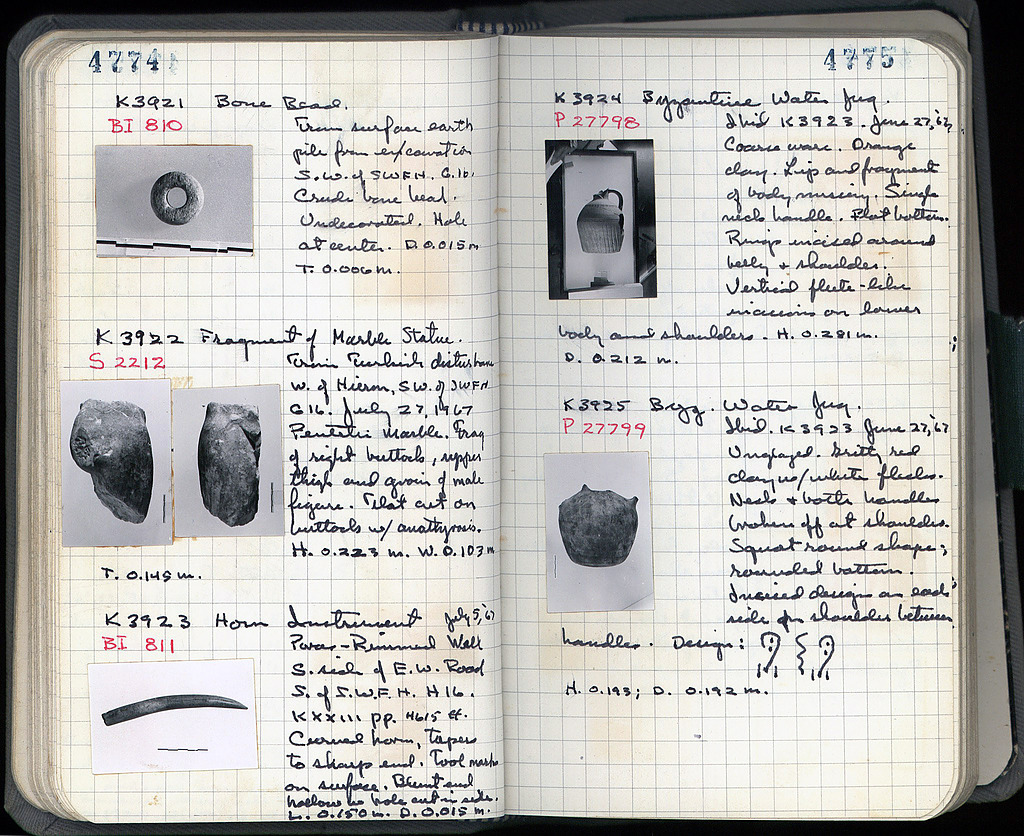 4774
K3921 Bone Bead.
BI 810
From surface earth
pile from excavation
S.W. of SWFH. G.16.
Crude bone bead.
Undecorated. Hole
at center. D. 0.015 m
T. 0.006 m.
K 3922 Fragment of Marble Statue.
S 2212
From Turkish disturbance
W. of Hieron, SW. of SWFH
G16. July 27, 1967
Pentelic Marble. Frag
of right buttock, upper
thigh and groin of male
figure. Flat cut on
buttock w/ anathyrosis.
H. 0.223 m. W. 0.103 m
T. 0.145 m.
K3923 Horn Instrument July 5, '67
BI 811
Poros-Rimmed Well
S. side of E.W. Road
S. of S.W.F.H. H16.
KXXIII pp. 4615 ff.
Curved horn, tapers
to sharp end. Tool marks
on surface. Blunt end
hollow w hole cut in side.
L. 0.150 m. D. 0.015 m.
4775
K3924 Byzantine Water Jug.
P 27798
Ibid K3923. June 27, '67,
Coarse ware. Orange
clay. Lip and fragment
of body missing. Single
neck handle. Flat bottom.
Rings incised around
belly + shoulder.
Vertical flute-like
incisions on lower
body and shoulders. H. 0.281 m.
D. 0.212 m.
K3925 Byz. Water Jug.
P 27799
Ibid. K3923 June 27, '67
Unglazed. Gritty red
clay w/white flecks.
Neck + both handles
broken off at shoulder.
Squat round shape;
rounded bottom.
Incised design on each
side on shoulder between
handles. Design:
H. 0.193; D. 0.192 m.